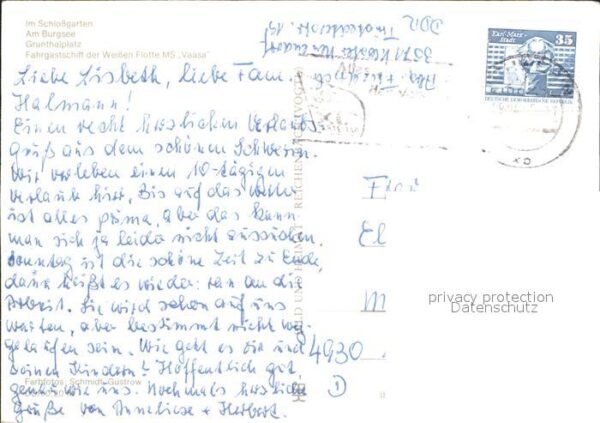 Im Schloßgarten
Am Burgsee
Grunthalplatz
Fahrgastschiff der Weißen Flotte MS „Vaasa"
Liebe Lisbeth, liebe Frau
Halmann!
Einen recht herzlichen Urlaubs-
gruß aus dem schönen Schwerin.
Wir verleben einen 10-tägigen
Urlaub hier. Bis auf das Wetter
ist alles prima, aber das kann
man sich ja leider nicht aussuchen.
Sonntag ist die schöne Zeit zu Ende,
dann heißt es wieder: ran an die
Arbeit. Sie wird schon auf uns
warten, aber bestimmt nicht weg-
gelaufen sein. Wie geht es Dir und
Deinen Kindern? Hoffentlich gut,
genau wie uns. Nochmals herzliche
Grüße von Anneliese + Herbert.
Farbfotos: Schmidt, Güstrow
BILD UND HEIMAT REICHENBACH
Abs.
DDR
Karl-Marx-
Stadt
35
DEUTSCHE DEMOKRATISCHE REPUBLIK
Frau
El
M
4930
D
privacy protection
Datenschutz